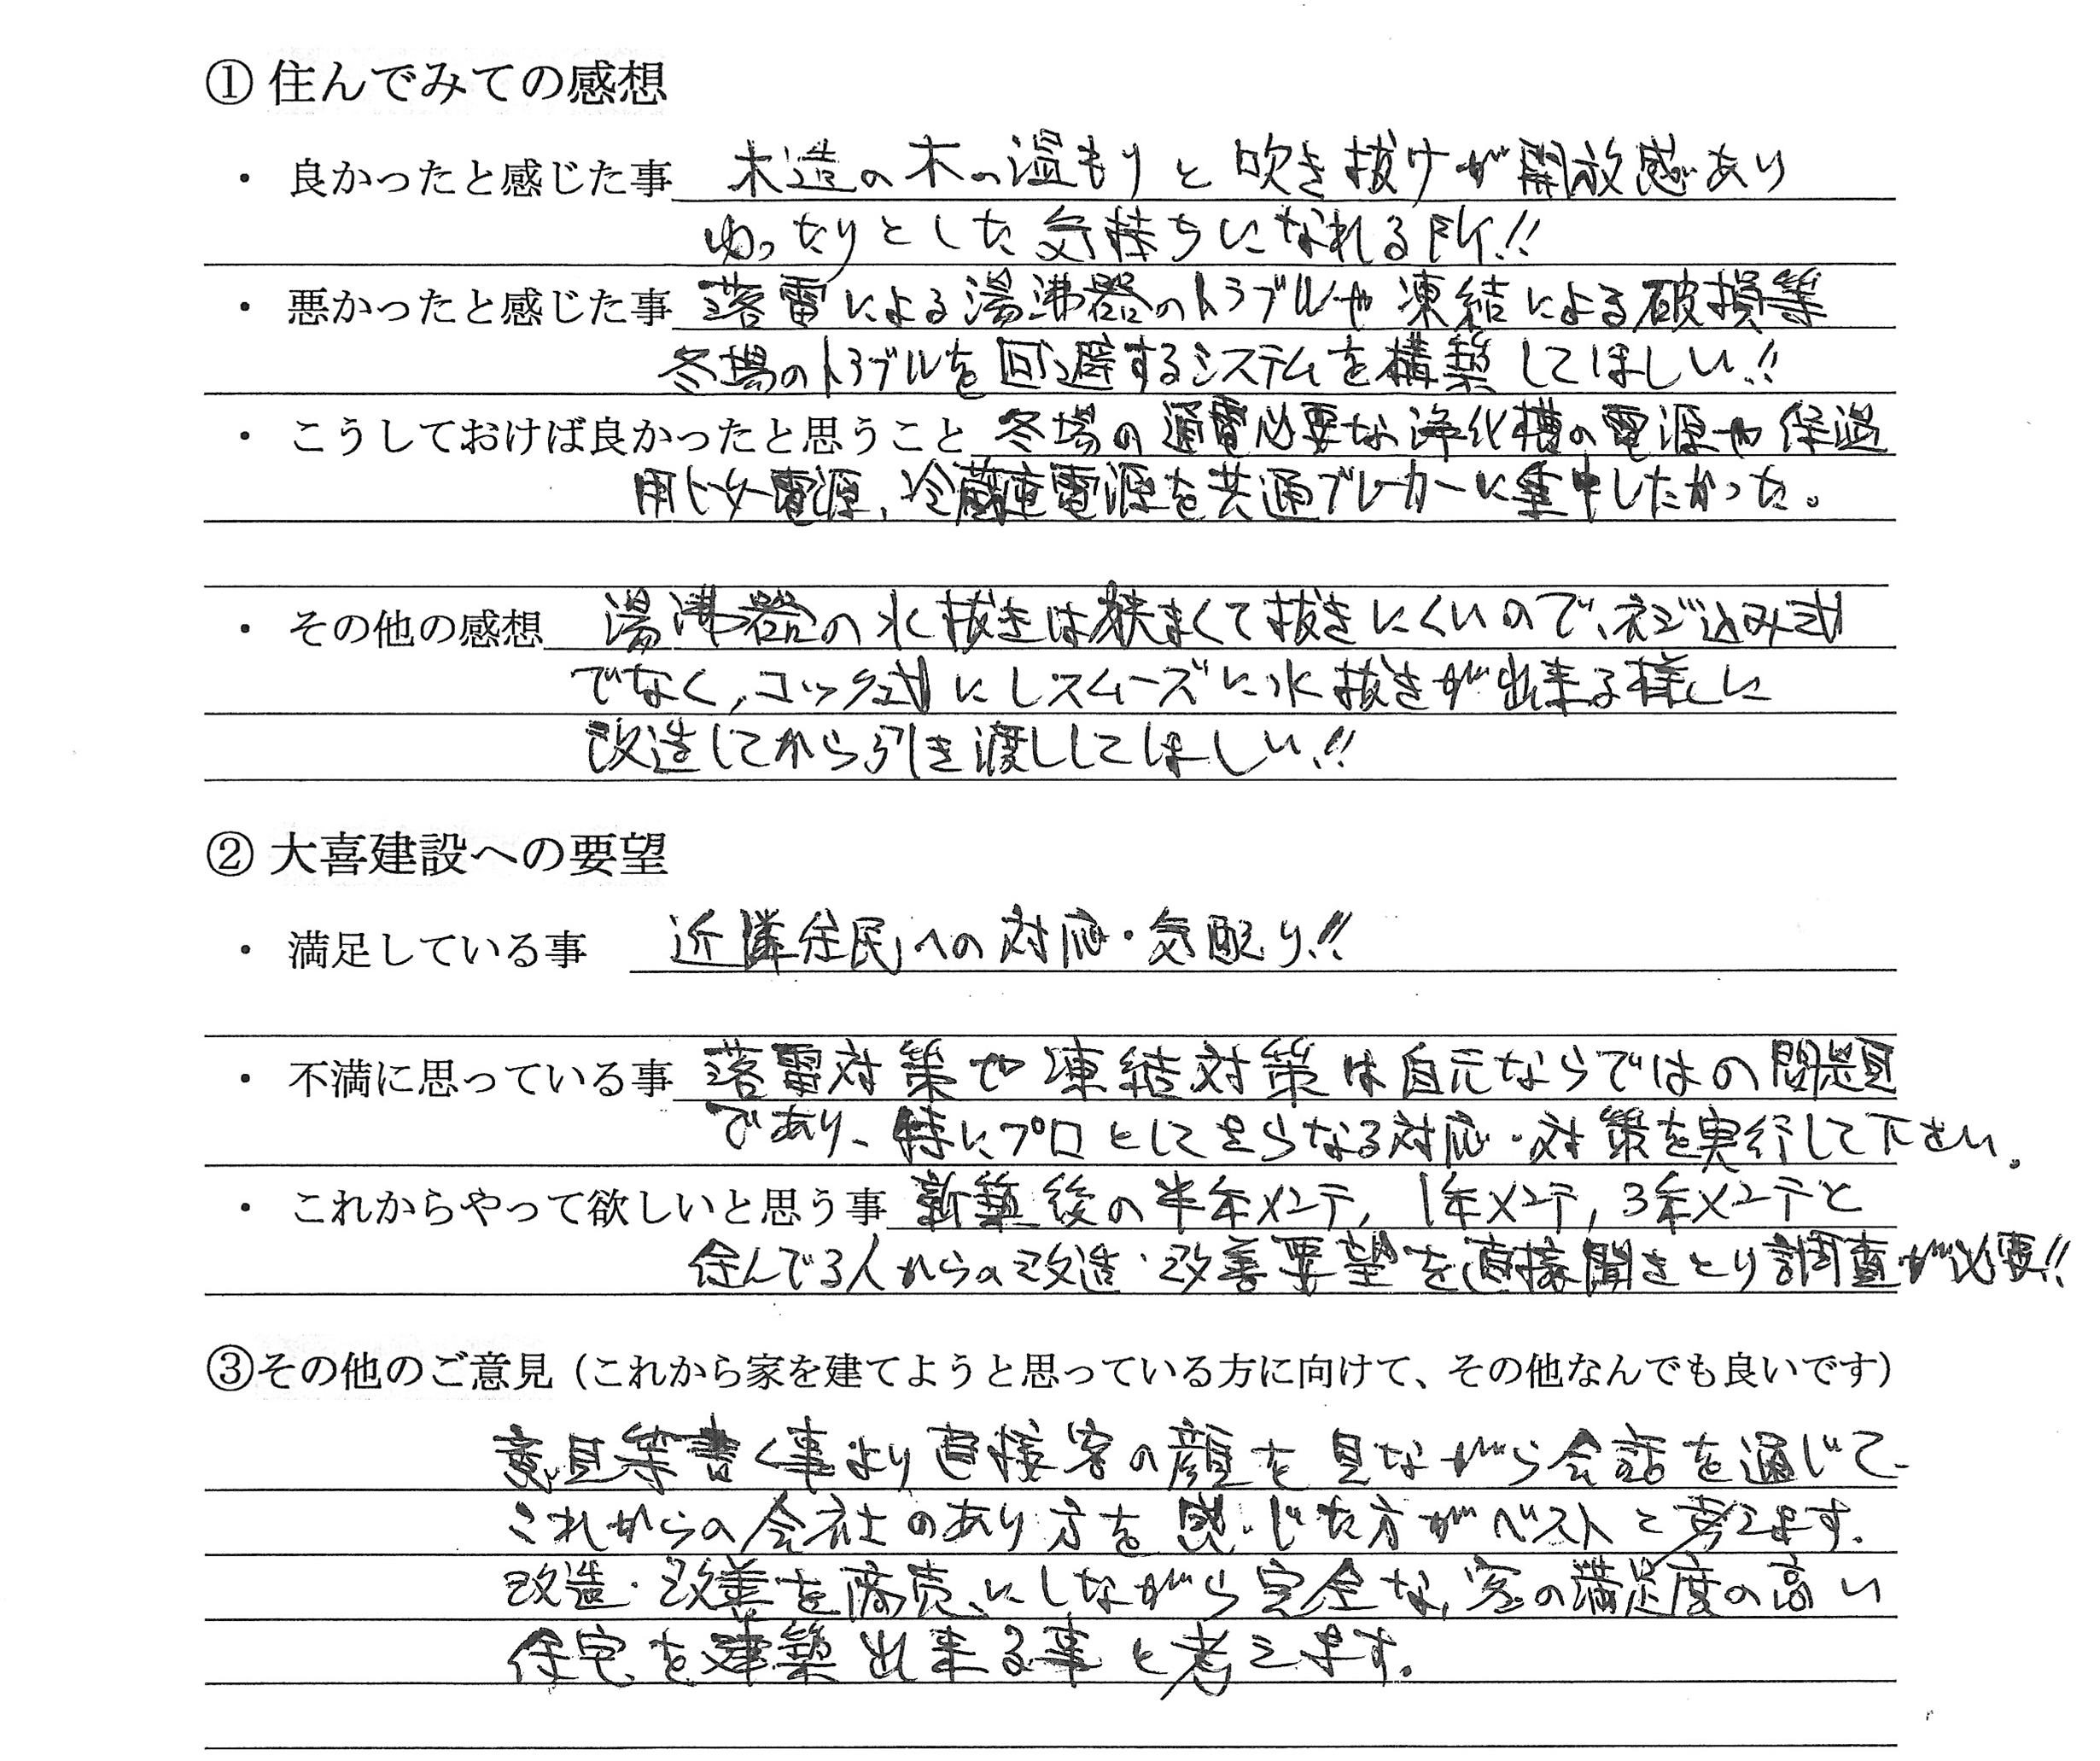 ① 住んでみての感想
・ 良かったと感じた事 木造の木の温もりと吹き抜けが開放感あり
ゆったりとした気持ちになれる所!!
・ 悪かったと感じた事 落雷による湯沸器のトラブルや凍結による破損等
冬場のトラブルを回避するシステムを構築してほしい!!
・ こうしておけば良かったと思うこと 冬場の通電必要な浄化槽の電源や保温
用ヒーター電源、冷蔵庫電源を共通ブレーカーに集中したかった。
・ その他の感想 湯沸器の水抜きは狭まくて抜きにくいので、ネジ込み式
でなく、コック式にしスムーズに水抜きが出来る様に
改造してから引き渡ししてほしい!!
② 大喜建設への要望
・ 満足している事 近隣住民への対応・気配り!!
・ 不満に思っている事 落雷対策や凍結対策は自元ならではの問題
であり、特にプロとしてさらなる対応・対策を実行して下さい。
・ これからやって欲しいと思う事 新築後の半年メンテ, 1年メンテ, 3年メンテと
住んでる人からの改造・改善要望を直接聞きとり調査が必要!!
③その他のご意見（これから家を建てようと思っている方に向けて、その他なんでも良いです）
意見等書く事より直接客の顔を見ながら会話を通じて
これからの会社のあり方を感じた方がベストと考えます。
改造・改善を商売にしながら完全な, 客の満足度の高い
住宅を建築出来る事と考えます。